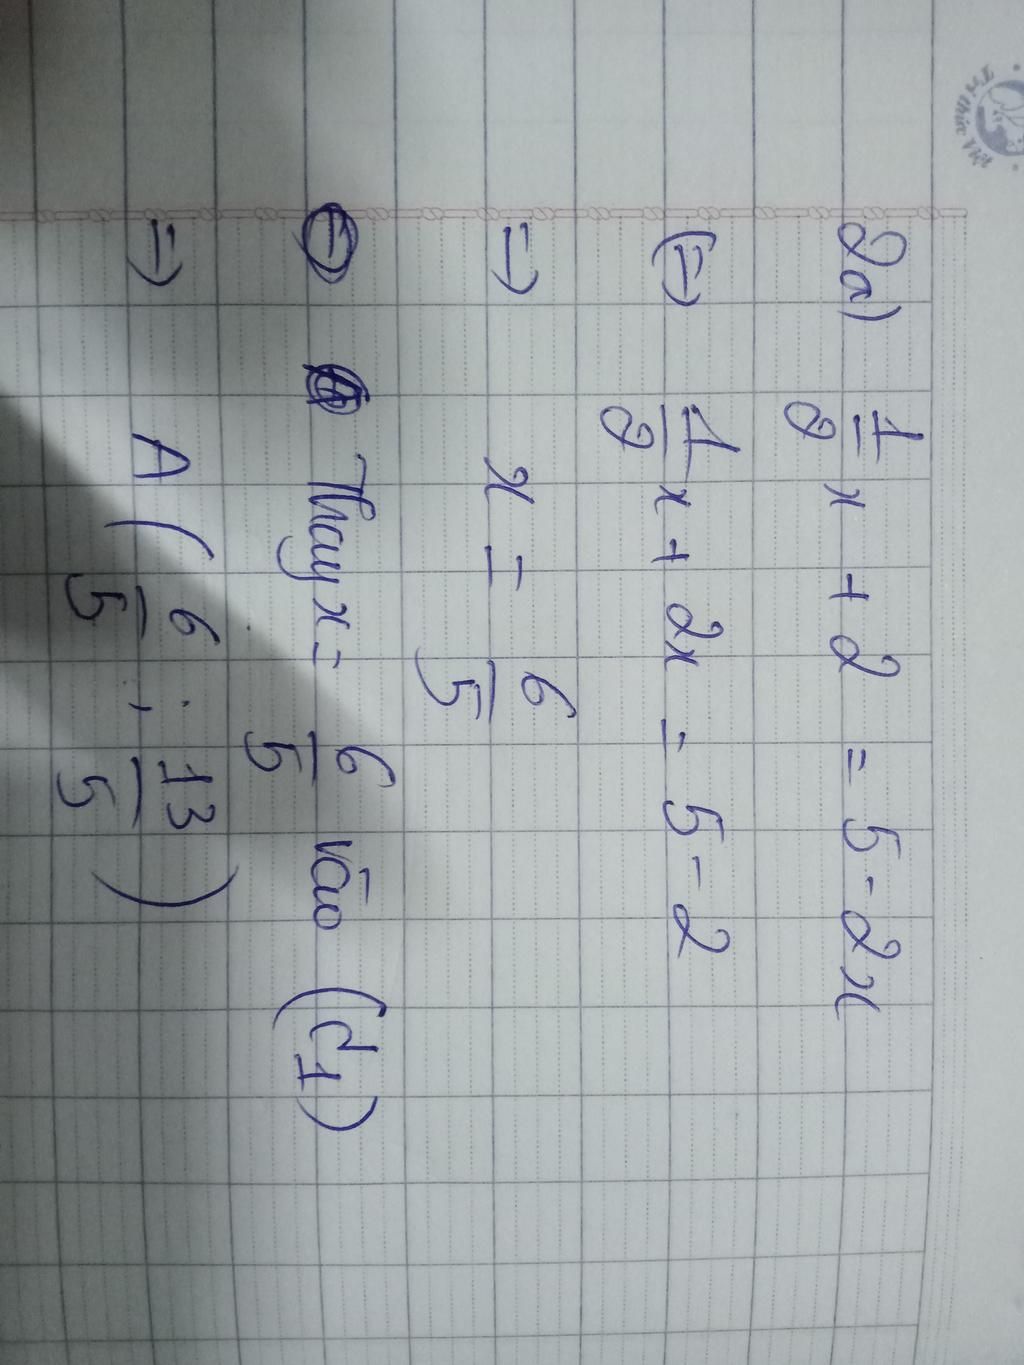 2a) 1/2 x + 2 = 5 - 2x
(=) 1/2 x + 2x = 5 - 2
=) x = 6/5
Thay x = 6/5 vào (d1)
=) A ( 6/5 ; 13/5 )
Tri thức